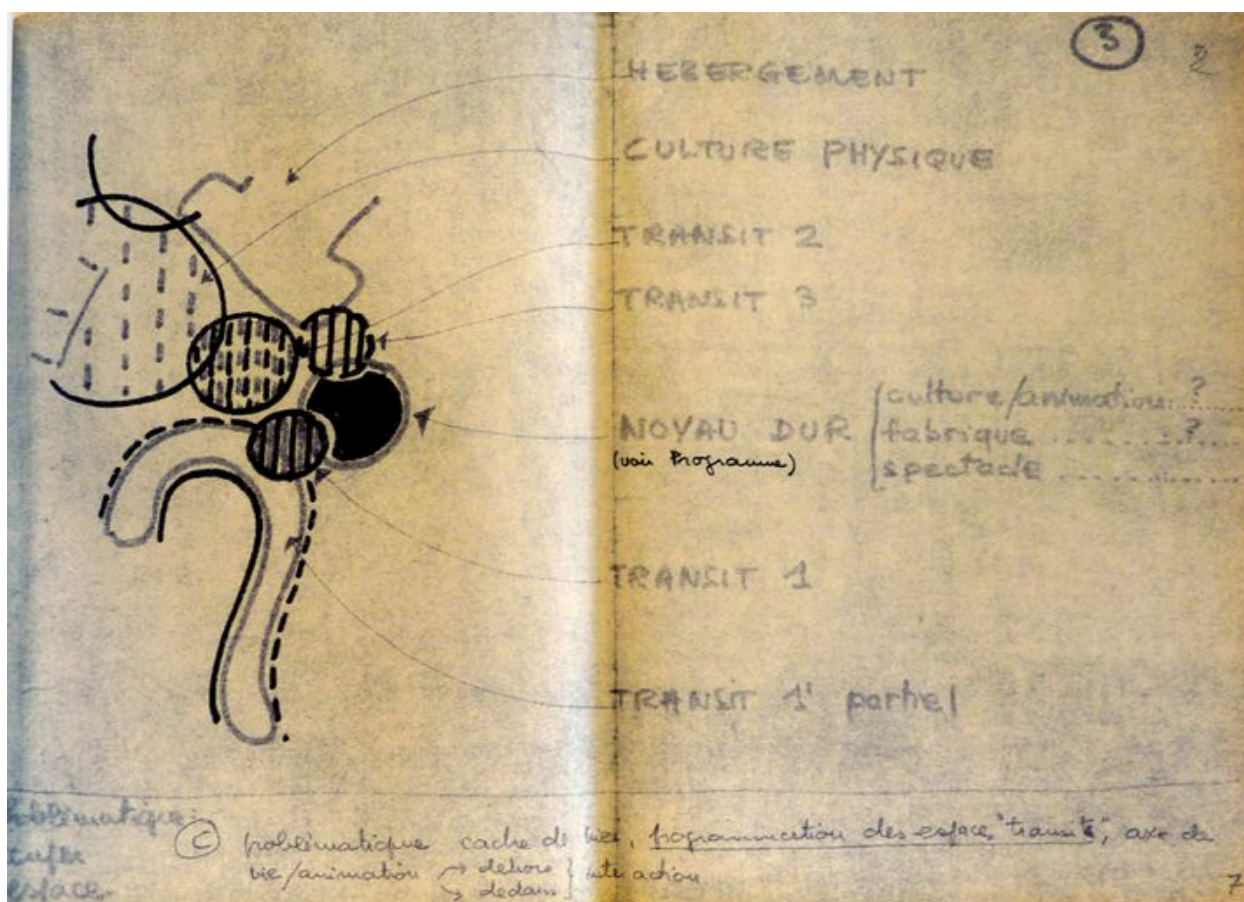 3
2
HEBERGEMENT
CULTURE PHYSIQUE
TRANSIT 2
TRANSIT 3
NOYAU DUR
(voir Programme)
culture/animation ?
fabrique ........ ?
spectacle ........
TRANSIT 1
TRANSIT 1' partiel
espace
C problématique cadre de vie, programmation des espaces "transits", axe de
vie/animation → dehors } interaction
→ dedans
7